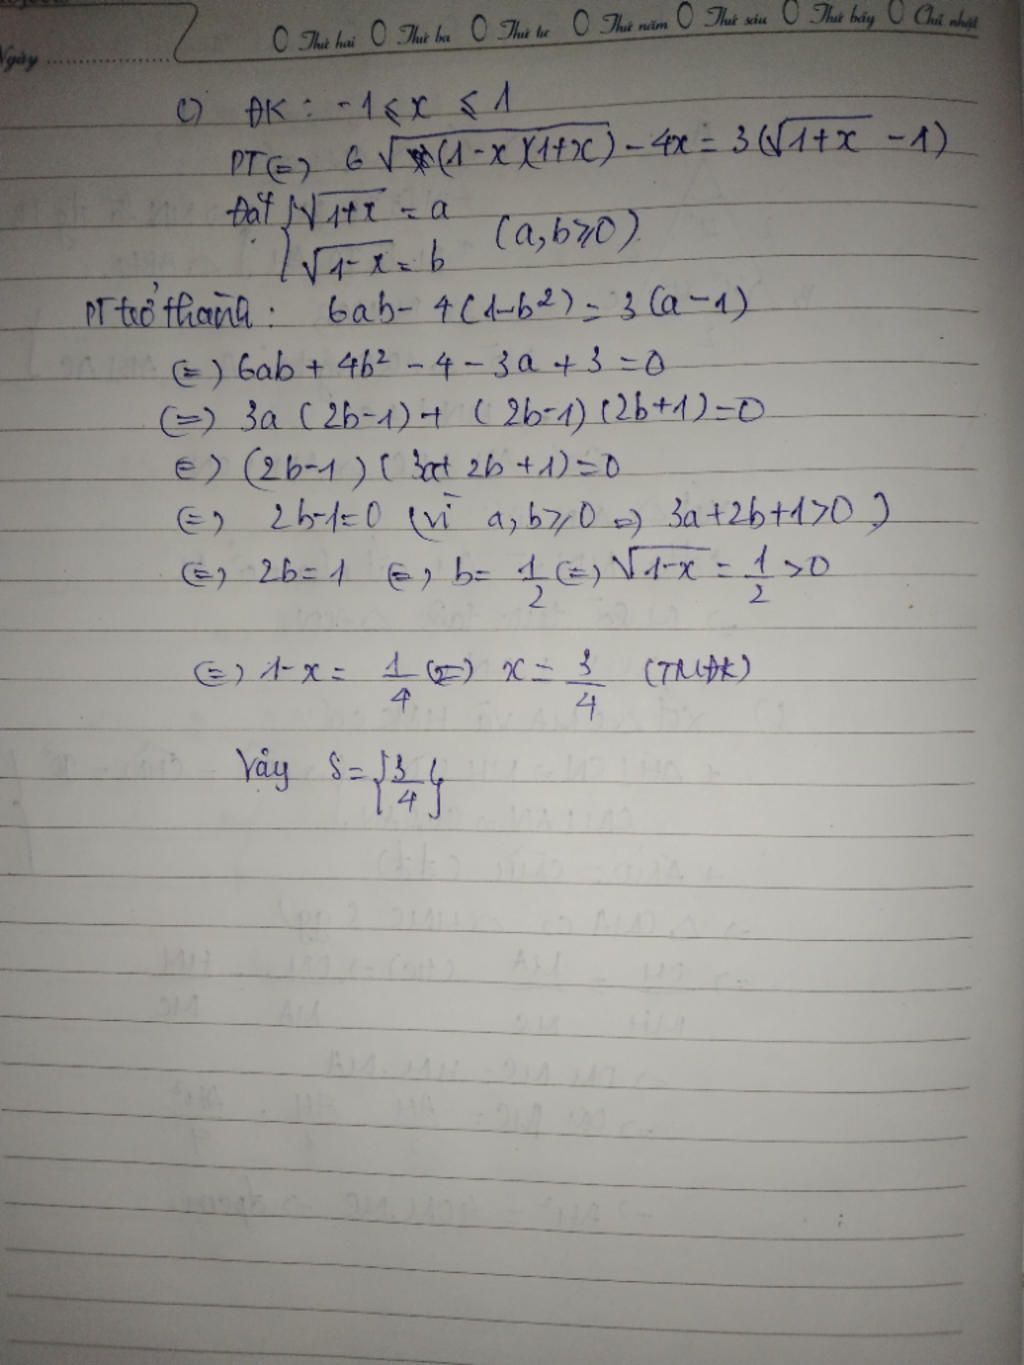 Ngày ........................ Thứ hai Thứ ba Thứ tư Thứ năm Thứ sáu Thứ bảy Chủ nhật
c) ĐK : -1 ≤ x ≤ 1
PT (=) 6 √(1-x)(1+x) - 4x = 3(√1+x - 1)
Đặt { √1+x = a
√1-x = b (a,b≥0)
PT trở thành : 6ab - 4(1-b²) = 3(a-1)
(=) 6ab + 4b² - 4 - 3a + 3 = 0
(=) 3a (2b-1) + (2b-1)(2b+1) = 0
(=) (2b-1)(3a+2b+1) = 0
(=) 2b-1=0 (vì a,b≥0 => 3a+2b+1>0)
(=) 2b=1 (=) b= 1/2 (=) √1-x = 1/2 >0
(=) 1-x = 1/4 (=) x = 3/4 (TMĐK)
Vậy S={3/4}